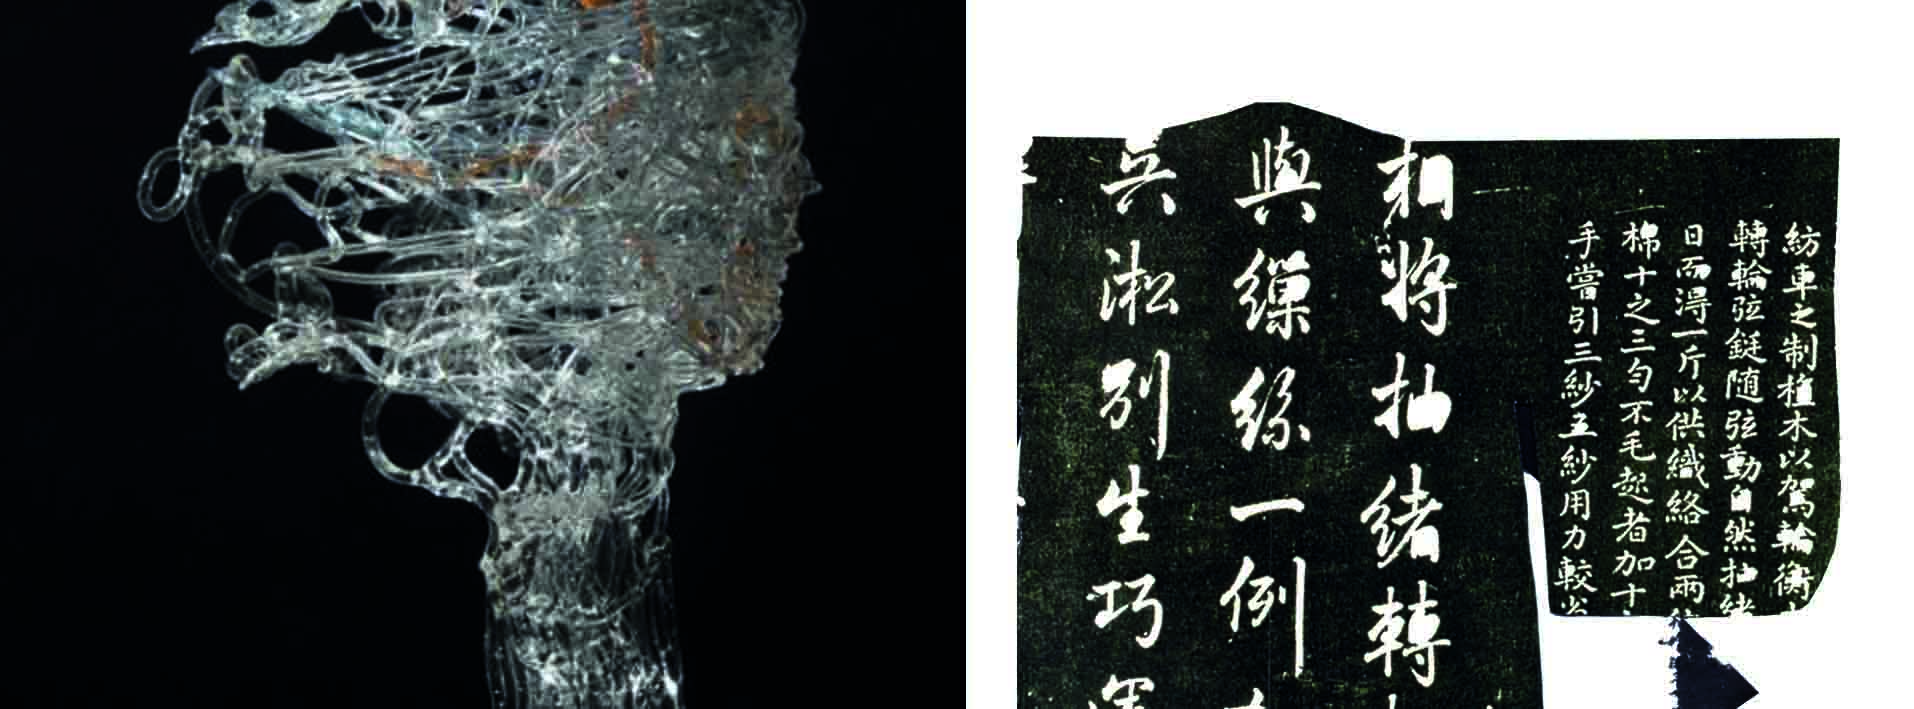 紡車之制植木以駕輪衡
轉輪弦鋌随弦動自然抽緒
日而得一斤以供織絡合兩
棉十之三勻不毛起者加十
手嘗引三紗五紗用力較省
相將抽緒轉
與繅絲一例
吳淞別生巧